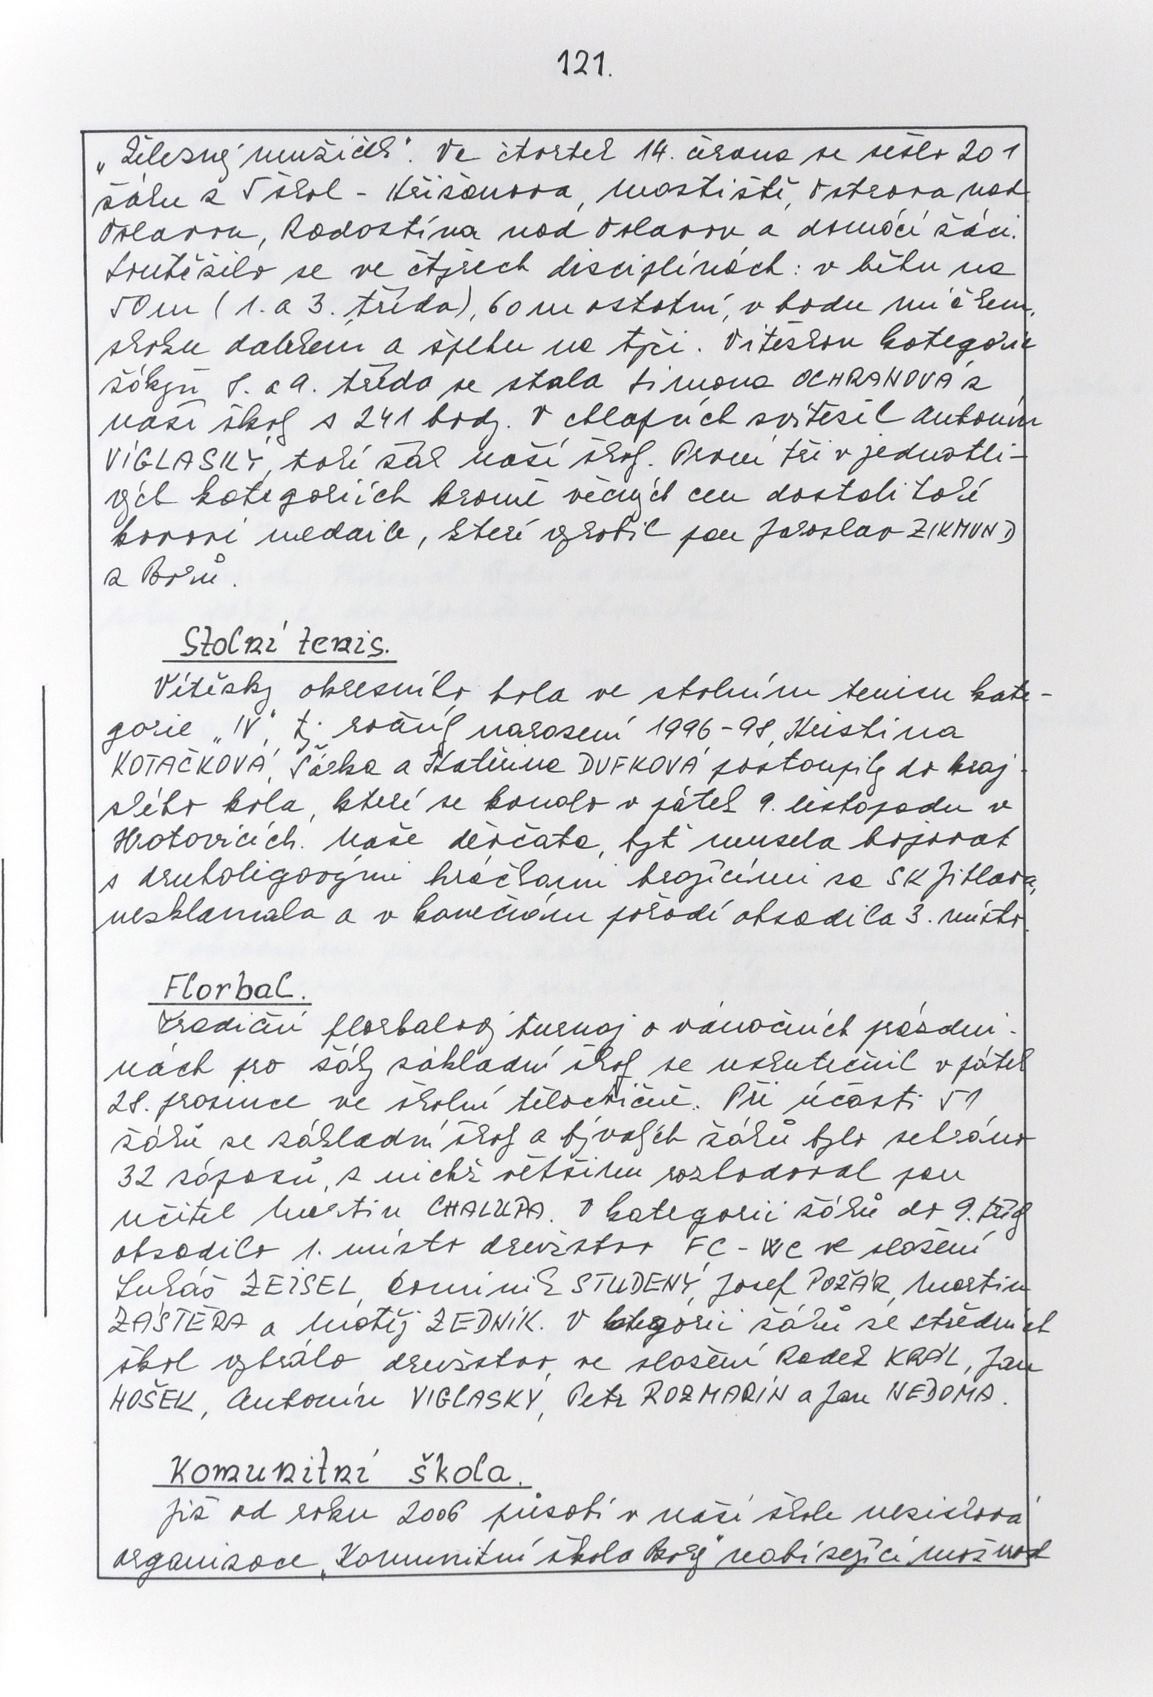 121.
„Železný mužíček". Ve čtvrtek 14. června se sešlo 201
žáků z 5 škol - Křižanova, Mostiště, Ostrova nad
Oslavou, Radostína nad Oslavou a domácí žáci.
Soutěžilo se ve čtyřech disciplínách: v běhu na
50 m (1. a 3. třída), 60 m ostatní, v hodu míčkem,
skoku dalekém a šplhu na tyči. Vítězkou kategorie
žákyň 8. a 9. třída se stala Simona OCHRANOVÁ z
naší školy s 241 body. V chlapcích zvítězil Antonín
VIGLASKÝ, také žák naší školy. První tři v jednotli-
vých kategoriích kromě věcných cen dostali také
kovové medaile, které vyrobil pan Jaroslav ZIKMUND
z Borů.
Stolní tenis.
Vítězky okresního kola ve stolním tenisu kate-
gorie „IV", tj. ročníky narození 1996-98, Kristina
KOTAČKOVÁ, Šárka a Kateřina DUFKOVÁ postoupily do kraj-
ského kola, které se konalo v pátek 9. listopadu v
Hrotovicích. Naše děvčata, byť musela bojovat
s druholigovými hráčkami hrajícími za SK Jihlava,
nezklamala a v konečném pořadí obsadila 3. místo.
Florbal.
Tradiční florbalový turnaj o vánočních prázdni-
nách pro žáky základní školy se uskutečnil v pátek
28. prosince ve školní tělocvičně. Při účasti 51
žáků se základní školy a bývalých žáků bylo sehráno
32 zápasů, z nichž většinu rozhodoval pan
učitel Martin CHALUPA. V kategorii žáků do 9. třídy
obsadilo 1. místo družstvo FC - WC ve složení
Lukáš ZEISEL, Dominik STUDENÝ, Josef POŽÁR, Martin
ZÁŠTĚRA a Matěj ZEDNÍK. V kategorii žáků se středních
škol vyhrálo družstvo ve složení Radek KRÁL, Jan
HOŠEK, Antonín VIGLASKÝ, Petr ROZMARÍN a Jan NEDOMA.
Komunitní škola.
Již od roku 2006 působí v naší škole nezisková
organizace „Komunitní škola Bory" nabízející možnost